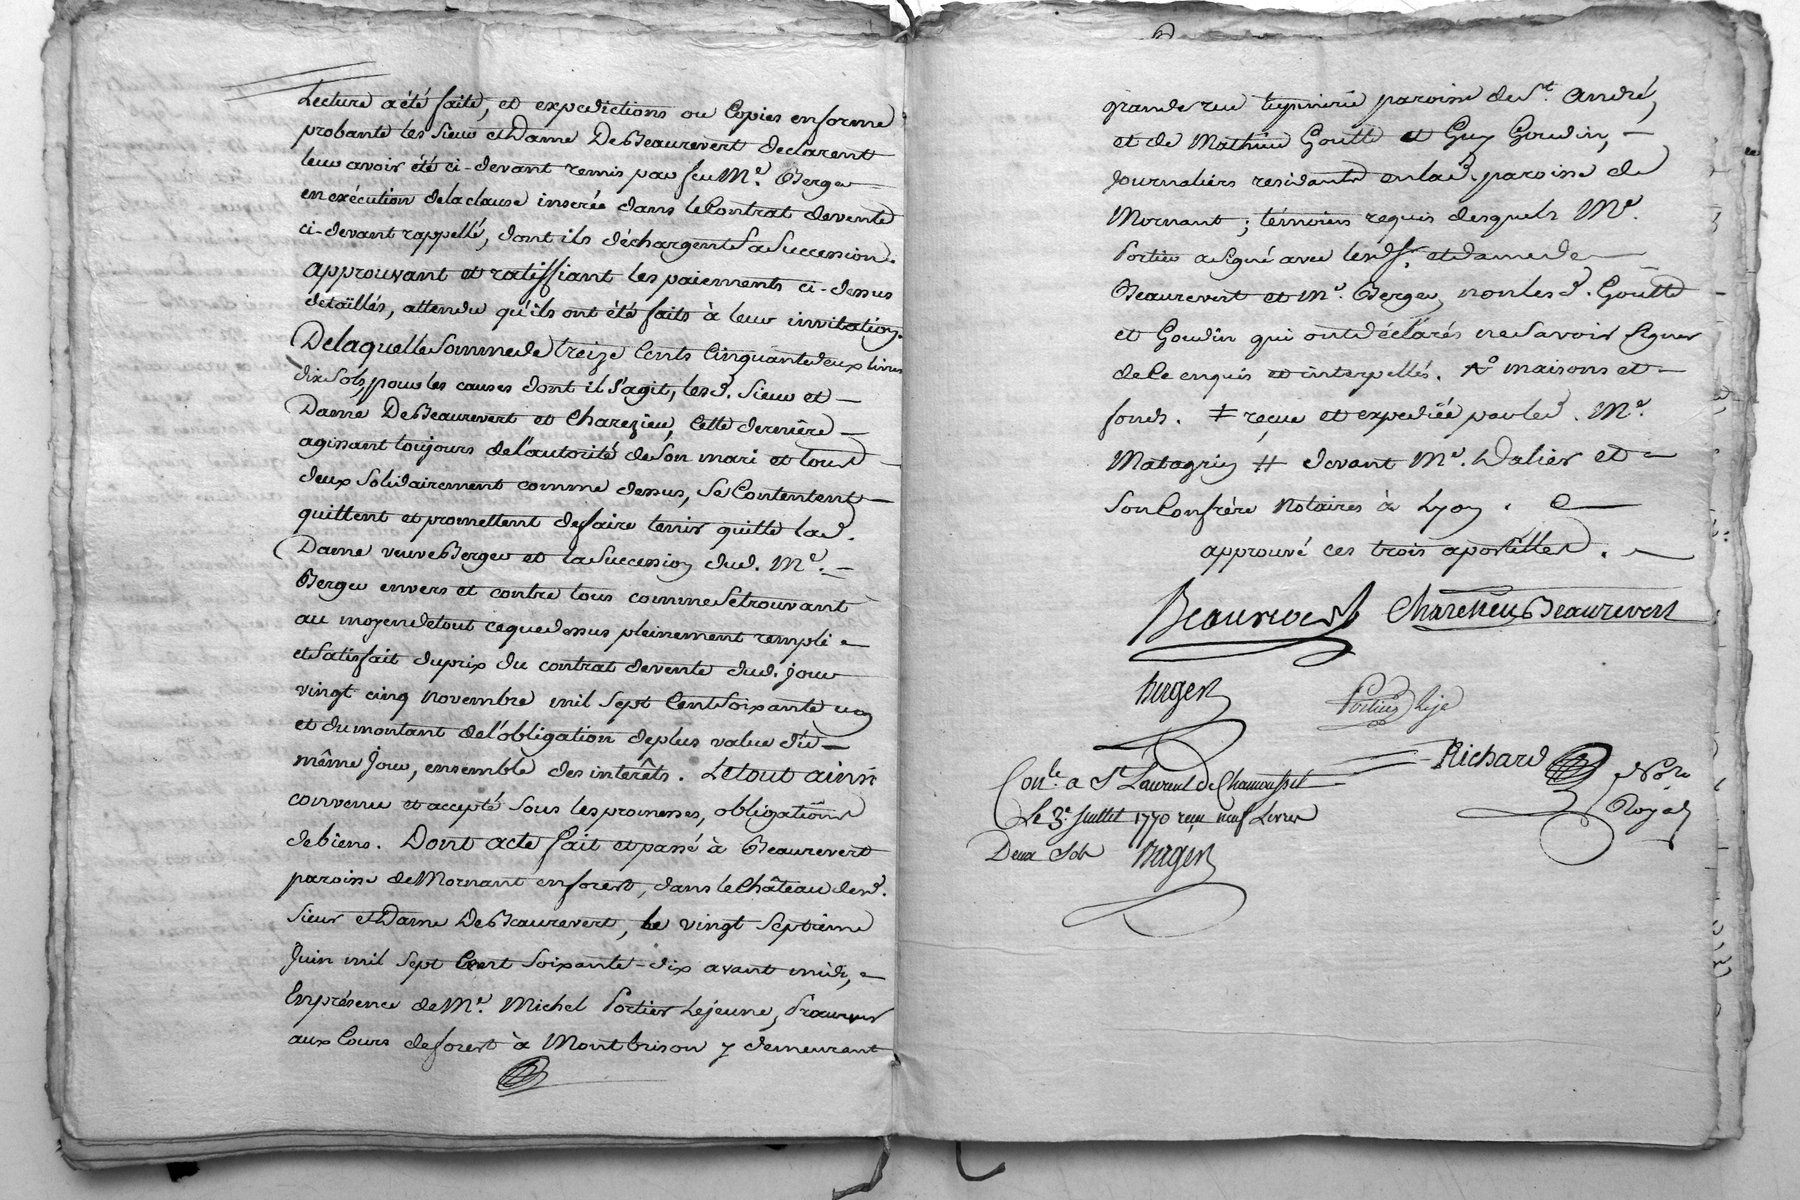 Lecture a été faite, et expedictions ou Copies en forme
probante les Sieur et Dame De Beaurevert declarent
leur avoir été ci-devant remis par feu Me. Berger
en exécution de la clause inserée dans le Contrat de vente
ci-devant rappellé, dont ils déchargent Sa Succession.
approuvant et ratiffiant les paiements ci-dessus
détaïllés, attendu qu'ils ont été faits à leur invitation.
De laquelle Somme de treize Cents Cinquante deux livres
dix Sols, pour les causes dont il s'agit, lesd. Sieur et
Dame De Beaurevert et Charezieu, Cette derenière
agissant toujours de l'autorité de Son mari et tous
deux Solidairement comme dessus, Se Contentent
quittent et promettent de faire tenir quitte lad.
Dame veuve Berger et la Succession dud. Me.
Berger envers et contre tous comme Se trouvant
au moyen de tout ce que dessus pleinement rempli
et Satisfait du prix du contrat de vente dud. jour
vingt cinq novembre mil Sept Cent Soixante un
et du montant de l'obligation de plus value du
même Jour, ensemble des intérêts. Le tout ainsi
convenu et accepté Sous les promesses, obligations
de biens. Dont acte fait et passé à Beaurevert
paroisse de Mornant en forest, dans le Château desd.
Sieur et Dame De Beaurevert, le vingt Septieme
Juin mil Sept Cent Soixante-dix avant midi,
En présence de Me. Michel Portier Lejeune, Procureur
aux Cours de forest à Montbrison y demeurant
grande rue tupinerie paroisse de St. André,
et de Mathieu Goutte et Guy Goudin,
Journaliers residants en lad. paroisse de
Mornant; témoins requis desquels Me.
Portier a Signé avec lesd. Sr. et dame de
Beaurevert et Me. Berger, non lesd. Goutte
et Goudin qui ont déclarés ne Savoir Signer
de Ce enquis et interpellés. maisons et
fonds. ‡ reçue et expediée par led. Me.
Matagrin # devant Me. Dalier et
Son Confrère Notaires à Lyon.
approuvé ces trois apostilles.
Beaurevert Charesieu Beaurevert
Burger Portier lejE
Richard Nore
Royal
Conlé. a St Laurent de Chamousset
Le 3e. Juillet 1770 reçu neuf Livres
Deux Sols Burger